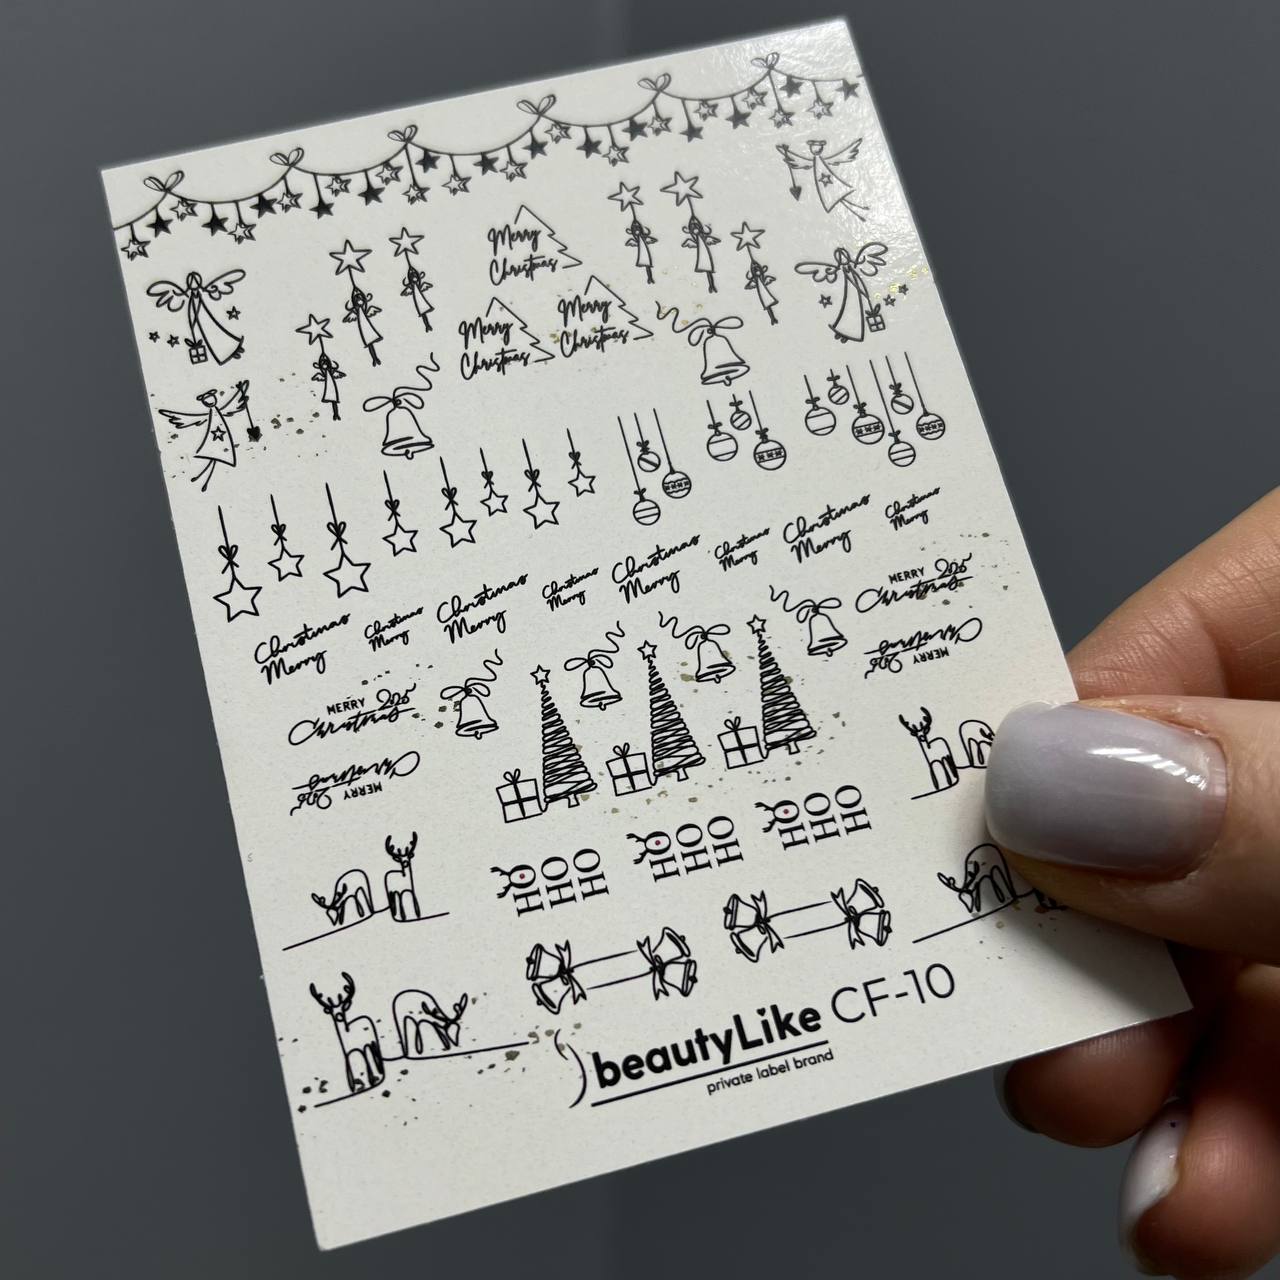 Merry
Christmas
Merry
Christmas
Merry
Christmas
Christmas
Merry
Christmas
Merry
Christmas
Merry
Christmas
Merry
Christmas
Merry
Christmas
Merry
Christmas
Merry
Christmas
Merry
MERRY 2025
Christmas
MERRY 2025
Christmas
MERRY 2025
Christmas
MERRY 2025
Christmas
HO
HO
HO
HO
HO
HO
HO
HO
HO
beautyLike CF-10
private label brand